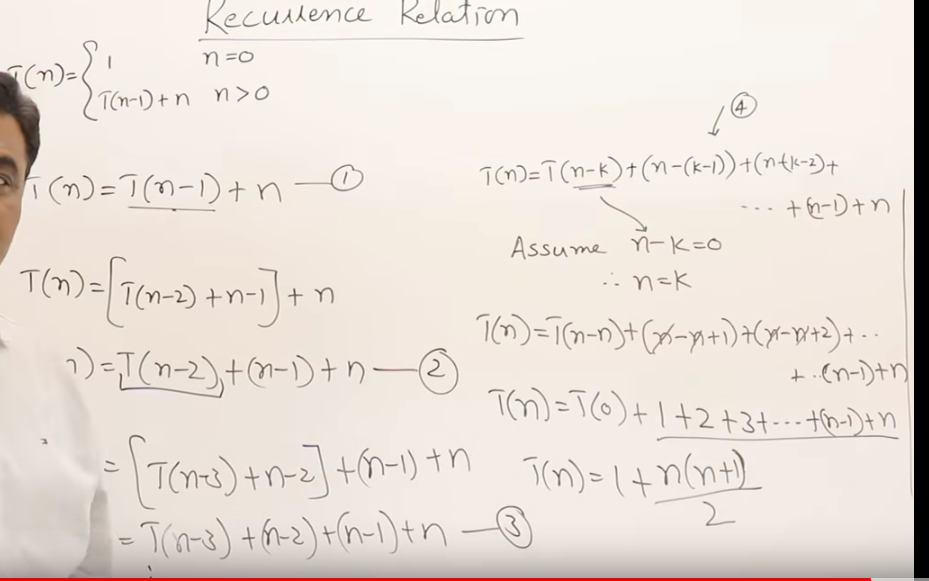 Recurrence Relation
T(n)= { 1 n=0
T(n-1)+n n>0
T(n)=T(n-1)+n —①
T(n)=[T(n-2)+n-1]+n
)=T(n-2)+(n-1)+n —②
=[T(n-3)+n-2]+(n-1)+n
=T(n-3)+(n-2)+(n-1)+n —③
④
T(n)=T(n-k)+(n-(k-1))+(n-(k-2)+
... +(n-1)+n
Assume n-k=0
∴ n=k
T(n)=T(n-n)+(n-n+1)+(n-n+2)+..
+..(n-1)+n
T(n)=T(0)+1+2+3+...+(n-1)+n
T(n)=1+n(n+1)
2